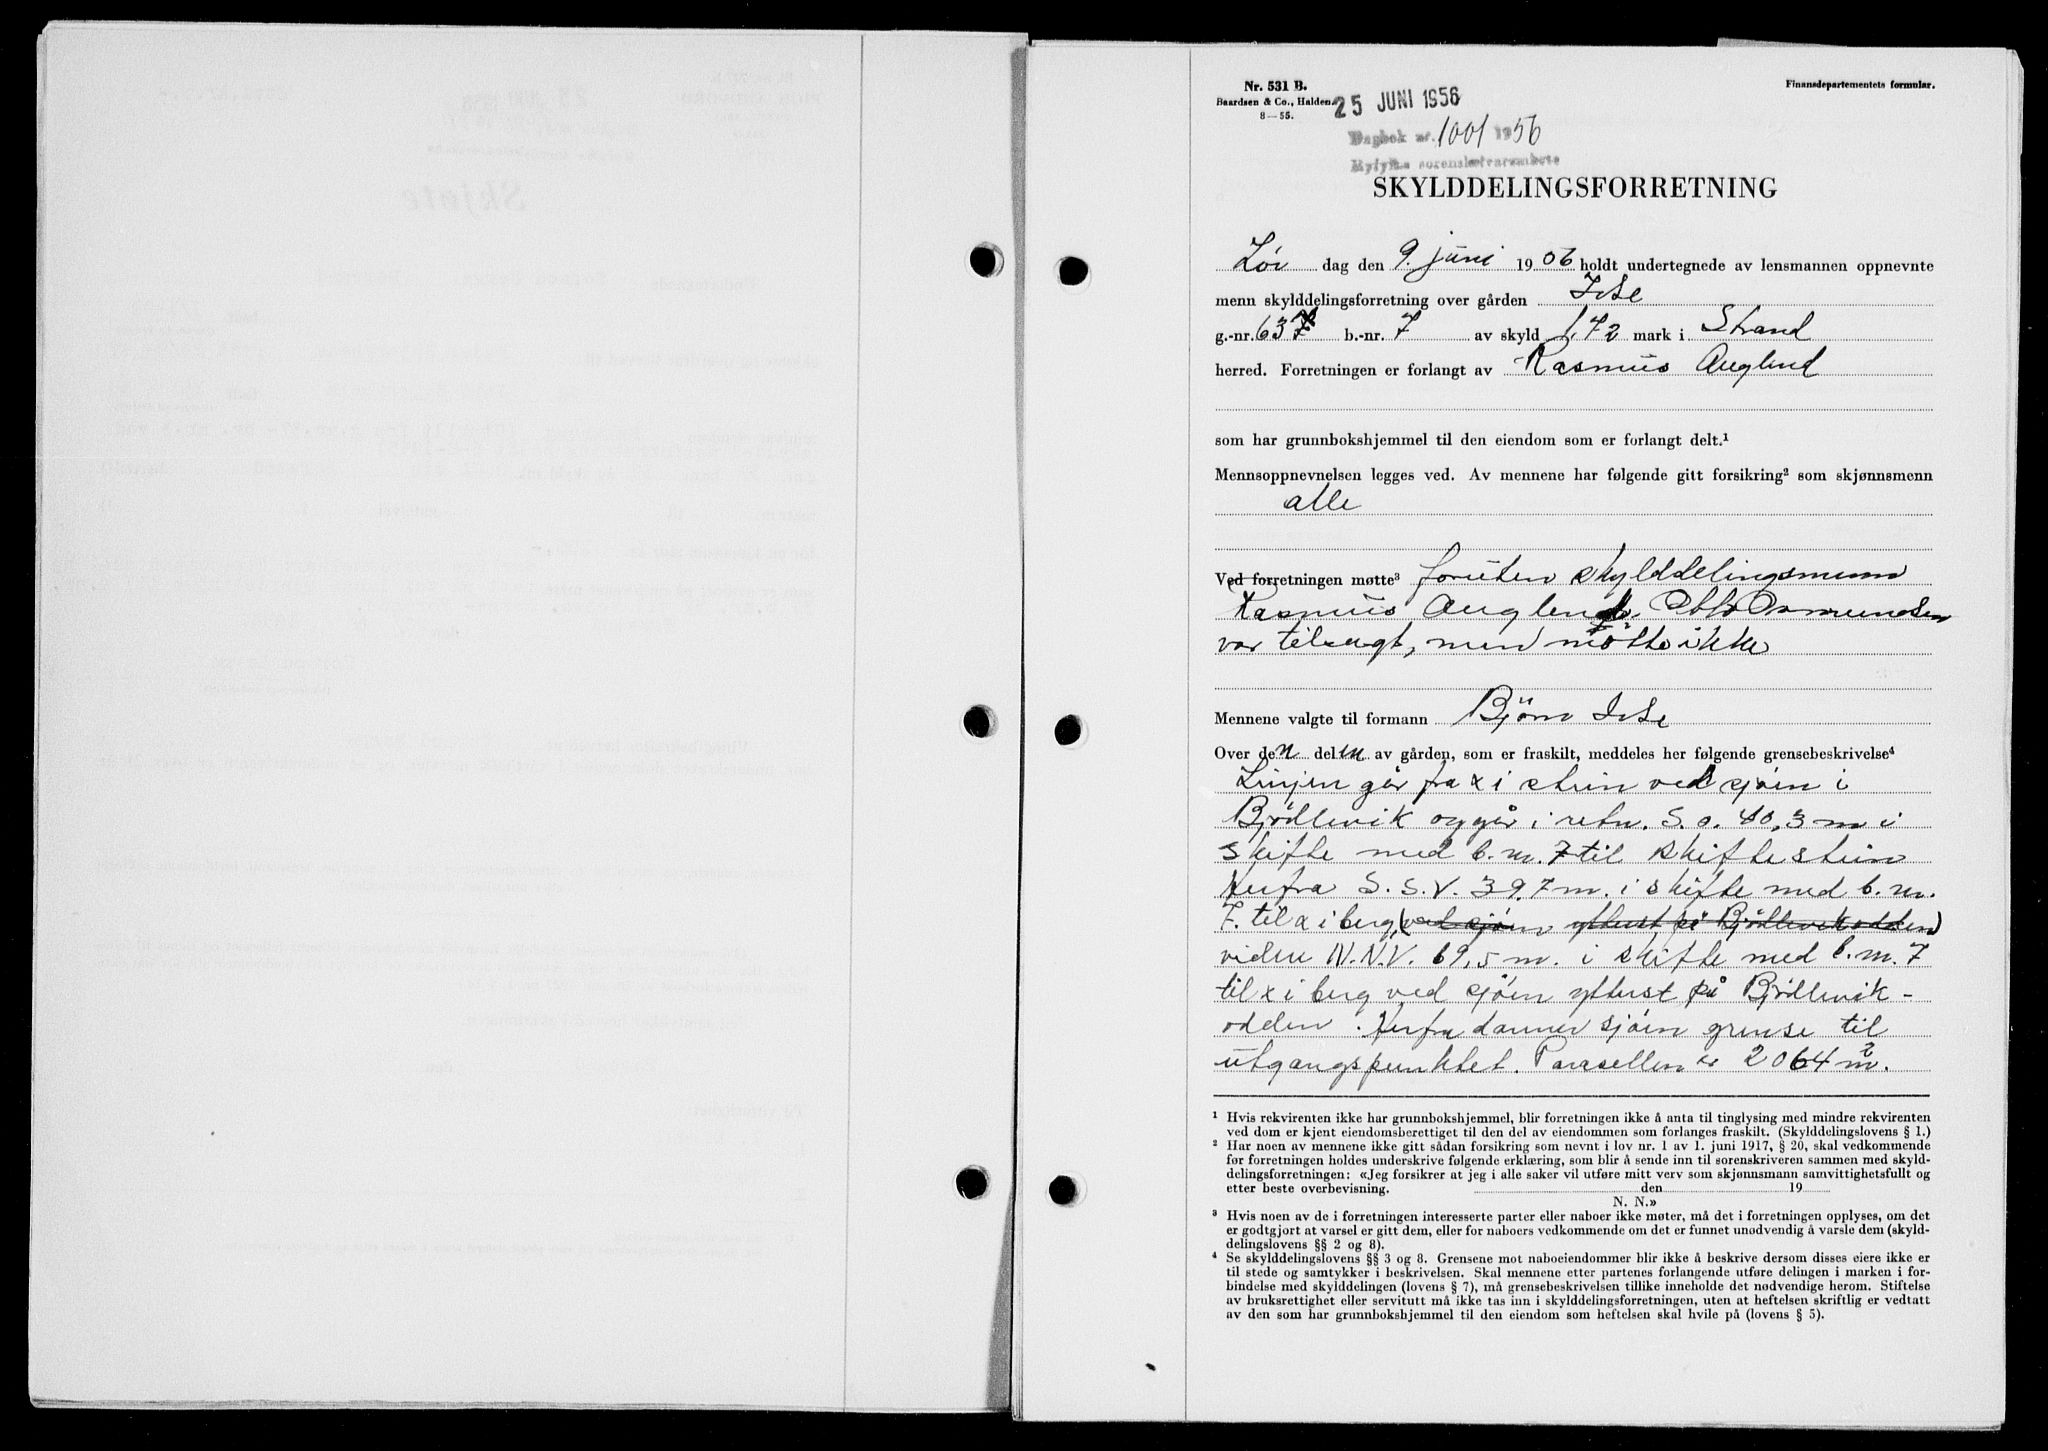 Nr. 531 B.
Baardsen & Co., Halden.
8—55.
25 JUNI 1956
Finansdepartementets formular.
Dagbok nr. 1001 1956
Ryfylke sorenskriverembete
SKYLDDELINGSFORRETNING
Lør dag den 9. juni 1956 holdt undertegnede av lensmannen oppnevnte
menn skylddelingsforretning over gården Idse
g.-nr. 63 b.-nr. 7 av skyld 1.72 mark i Strand
herred. Forretningen er forlangt av Rasmus Auglend
som har grunnbokshjemmel til den eiendom som er forlangt delt.¹
Mennsoppnevnelsen legges ved. Av mennene har følgende gitt forsikring² som skjønnsmenn
alle
Ved forretningen møtte³ foruten skylddelingsmenn
Rasmus Auglend. Otto Osmundsen
var tilsagt, men møtte ikke
Mennene valgte til formann Bjørn Idse
Over den delen av gården, som er fraskilt, meddeles her følgende grensebeskrivelse⁴
Linjen går fra x i stein ved sjøen i
Bjödlevik og går i retn. S.o. 40,3 m i
skifte med b.nr. 7 til skiftestein
Herfra S.S.V. 39.7 m. i skifte med b.nr.
7. til x i berg, (ved sjøen ytterst på Bjödlevikodden)
videre N.N.V. 69,5 m. i skifte med b.nr. 7
til x i berg ved sjøen ytterst på Bjödlevik-
odden. Herfra danner sjøen grense til
utgangspunktet. Parsellen er 2064 m².
¹ Hvis rekvirenten ikke har grunnbokshjemmel, blir forretningen ikke å anta til tinglysing med mindre rekvirenten
ved dom er kjent eiendomsberettiget til den del av eiendommen som forlanges fraskilt. (Skylddelingslovens § 1.)
² Har noen av mennene ikke gitt sådan forsikring som nevnt i lov nr. 1 av 1. juni 1917, § 20, skal vedkommende
før forretningen holdes underskrive følgende erklæring, som blir å sende inn til sorenskriveren sammen med skyld-
delingsforretningen: «Jeg forsikrer at jeg i alle saker vil utføre mitt verv som skjønnsmann samvittighetsfullt og
etter beste overbevisning. den 19
N. N.»
³ Hvis noen av de i forretningen interesserte parter eller naboer ikke møter, må det i forretningen opplyses, om det
er godtgjort at varsel er gitt dem, eller for naboers vedkommende om det er funnet unødvendig å varsle dem (skyld-
delingslovens §§ 2 og 8).
⁴ Se skylddelingslovens §§ 3 og 8. Grensene mot naboeiendommer blir ikke å beskrive dersom disses eiere ikke er
til stede og samtykker i beskrivelsen. Skal mennene etter partenes forlangende utføre delingen i marken i for-
bindelse med skylddelingen (lovens § 7), må grensebeskrivelsen tillike inneholde det nødvendige herom. Stiftelse
av bruksrettighet eller servitutt må ikke tas inn i skylddelingsforretningen, uten at heftelsen skriftlig er vedtatt
av den som har grunnbokshjemmel til den eiendom som heftelsen skal hvile på (lovens § 5).